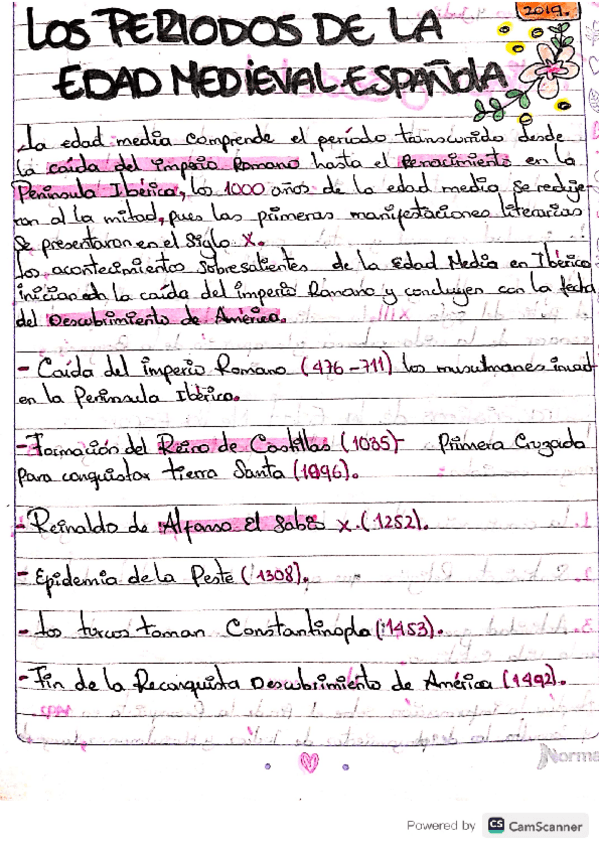 2019.
LOS PERIODOS DE LA
EDAD MEDIEVAL ESPAÑOLA
La edad media comprende el período transcurrido desde
la caída del imperio Romano hasta el Renacimiento en la
Península Ibérica, los 1000 años de la edad media se reduje-
ron al la mitad, pues las primeras manifestaciones literarias
se presentaron en el siglo X.
Los acontecimientos sobresalientes de la Edad Media en Iberico
inician con la caída del imperio Romano y concluyen con la fecha
del Descubrimiento de América.
- Caída del imperio Romano (476-711) los musulmanes invad
en la Península Ibérica.
- Formación del Reino de Castillas (1035)- Primera Cruzada
para conquistar tierra Santa (1096).
- Reinaldo de Alfonso El Sabio X. (1252).
- Epidemia de la Peste (1308).
- Los turcos toman Constantinopla (1453).
- Fin de la Reconquista Descubrimiento de América (1492).
Norma
Powered by CS CamScanner